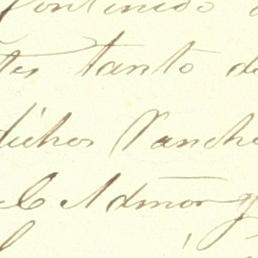 Contenido
tes tanto de
dichos Ranch
el Admor